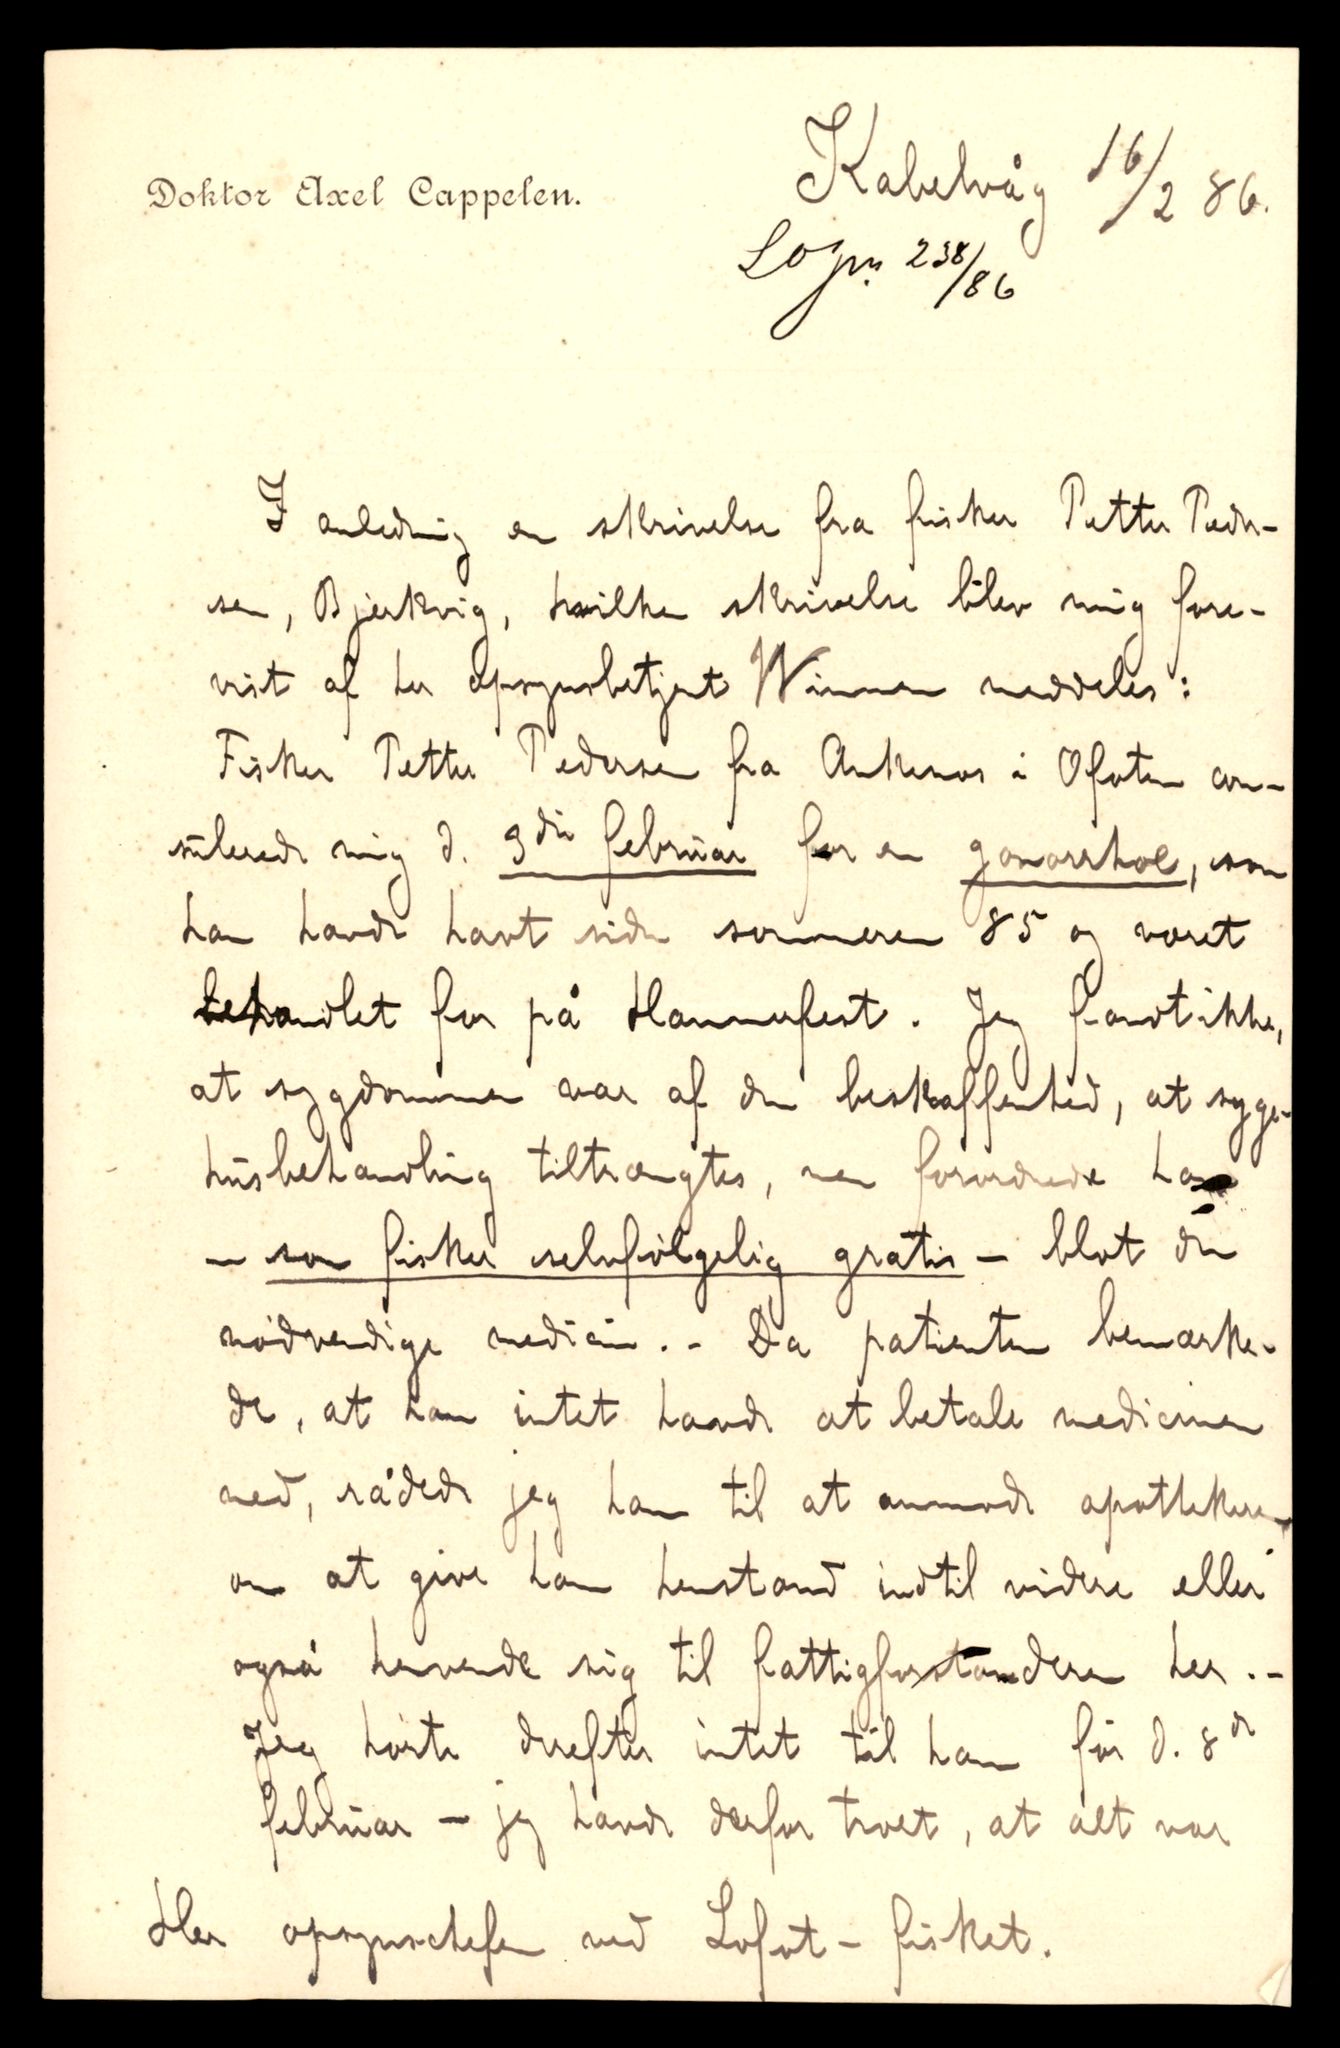 Doktor Axel Cappelen.
Kabelvåg 16/2 86.
LOJn. 238/86
I anledning en skrivelse fra fisker Petter Peder-
sen, Bjerkvig, hvilken skrivelse blev mig fore-
vist af her opsynsbetjent Winman meddeles:
Fisker Petter Pedersen fra Ankenes i Ofoten con-
sulerede mig d. 3die februar for en gonorrhoe, som
han havde havt siden sommeren 85 og været
behandlet for på Hammerfest. Jeg fandt ikke,
at sygdommen var af den beskaffenhed, at syge-
husbehandling tiltrængtes, men forordnede ham
– som fisker selvfølgelig gratis – blot den
nødvendige medicin. – Da patienten bemærke-
de, at han intet havde at betale medicinen
med, rådede jeg ham til at anmode apothekeren
om at give ham henstand indtil videre eller
også henvende sig til fattigforstanderen her. –
Jeg hørte derefter intet til ham før d. 8de
februar – jeg havde derfor troet, at alt var
Herr opsynschefen ved Lofot-fisket.